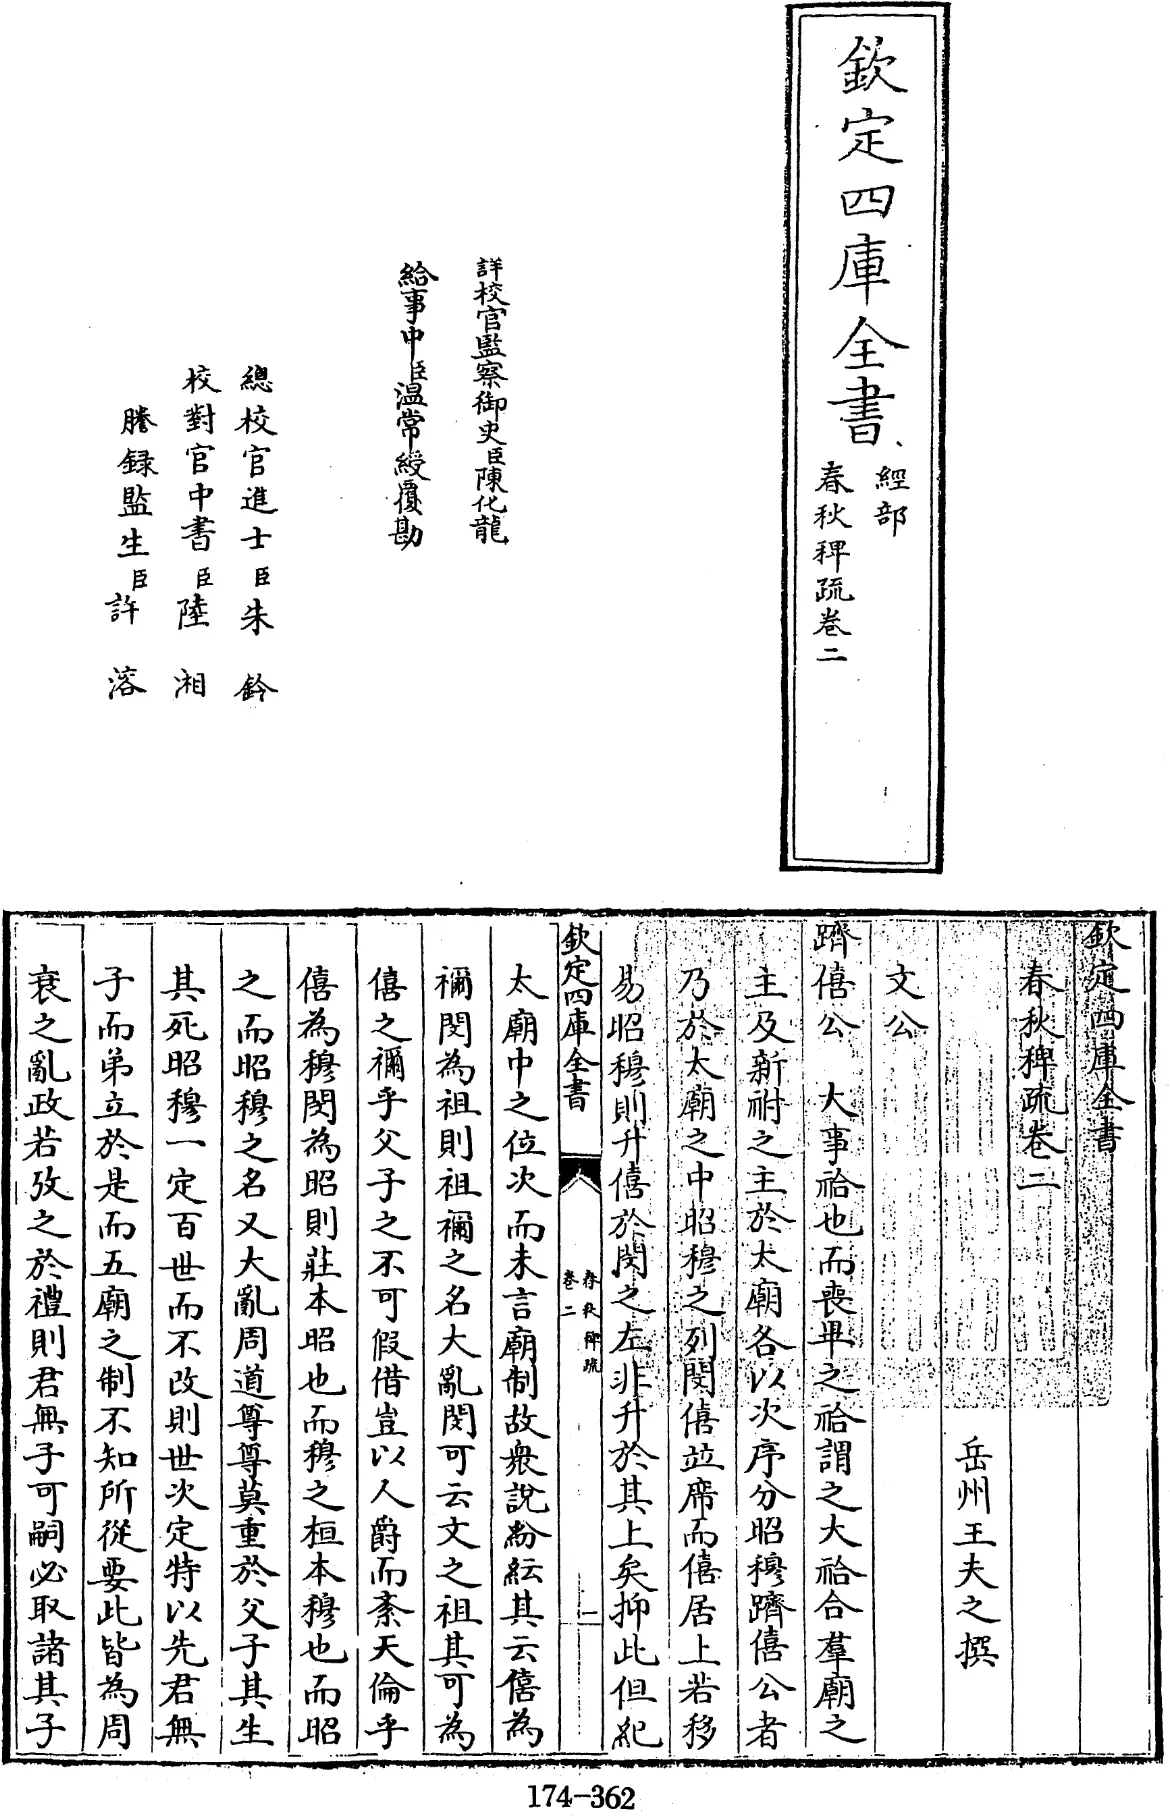 欽定四庫全書
經部
春秋稗疏卷二
詳校官監察御史臣陳化龍
給事中臣温常綬覆勘
總校官進士臣朱鈐
校對官中書臣陸湘
謄録監生臣許溶
欽定四庫全書
春秋稗疏卷二
岳州王夫之撰
文公
躋僖公 大事祫也而喪畢之祫謂之大祫合羣廟之
主及新祔之主於太廟各以次序分昭穆躋僖公者
乃於太廟之中昭穆之列閔僖並席而僖居上若移
易昭穆則升僖於閔之左非升於其上矣抑此但紀
欽定四庫全書
春秋稗疏
卷二
二
太廟中之位次而未言廟制故衆説紛紜其云僖為
禰閔為祖則祖禰之名大亂閔可云文之祖其可為
僖之禰乎父子之不可假借豈以人爵而紊天倫乎
僖為穆閔為昭則莊本昭也而穆之桓本穆也而昭
之而昭穆之名又大亂周道尊尊莫重於父子其生
其死昭穆一定百世而不改則世次定特以先君無
子而弟立於是而五廟之制不知所從要此皆為周
衰之亂政若攷之於禮則君無子可嗣必取諸其子
174-362